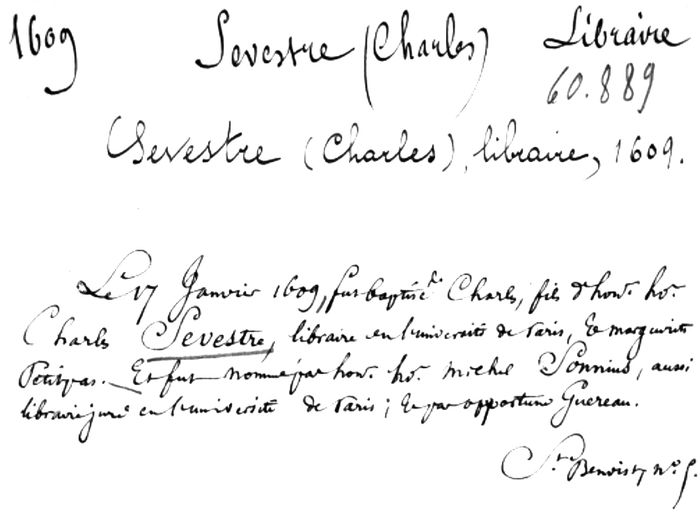 1609 Sevestre (Charles) Libraire
60.889
Sevestre (Charles), libraire, 1609.
Le 17 Janvier 1609, fut baptisé Charles, fils d'hon. ho.
Charles Sevestre, libraire en l'université de Paris, & marguerite
Petitpas. _ Et fut nommé par hon. ho. michel Sonnius, aussi
libraire juré en l'université de Paris; & par opportune Guereau.
St. Benoist, no. 5.